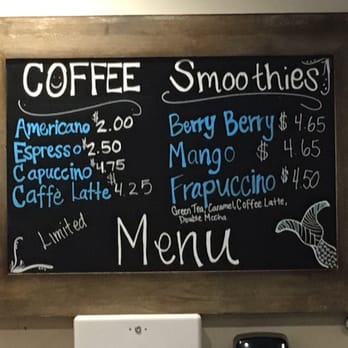 COFFEE
Americano $2.00
Espresso $2.50
Capuccino $4.75
Caffè Latte $4.25
Limited
Smoothies!
Berry Berry $4.65
Mango $4.65
Frapuccino $4.50
Green Tea, Caramel, Coffee Latte,
Double Mocha
Menu